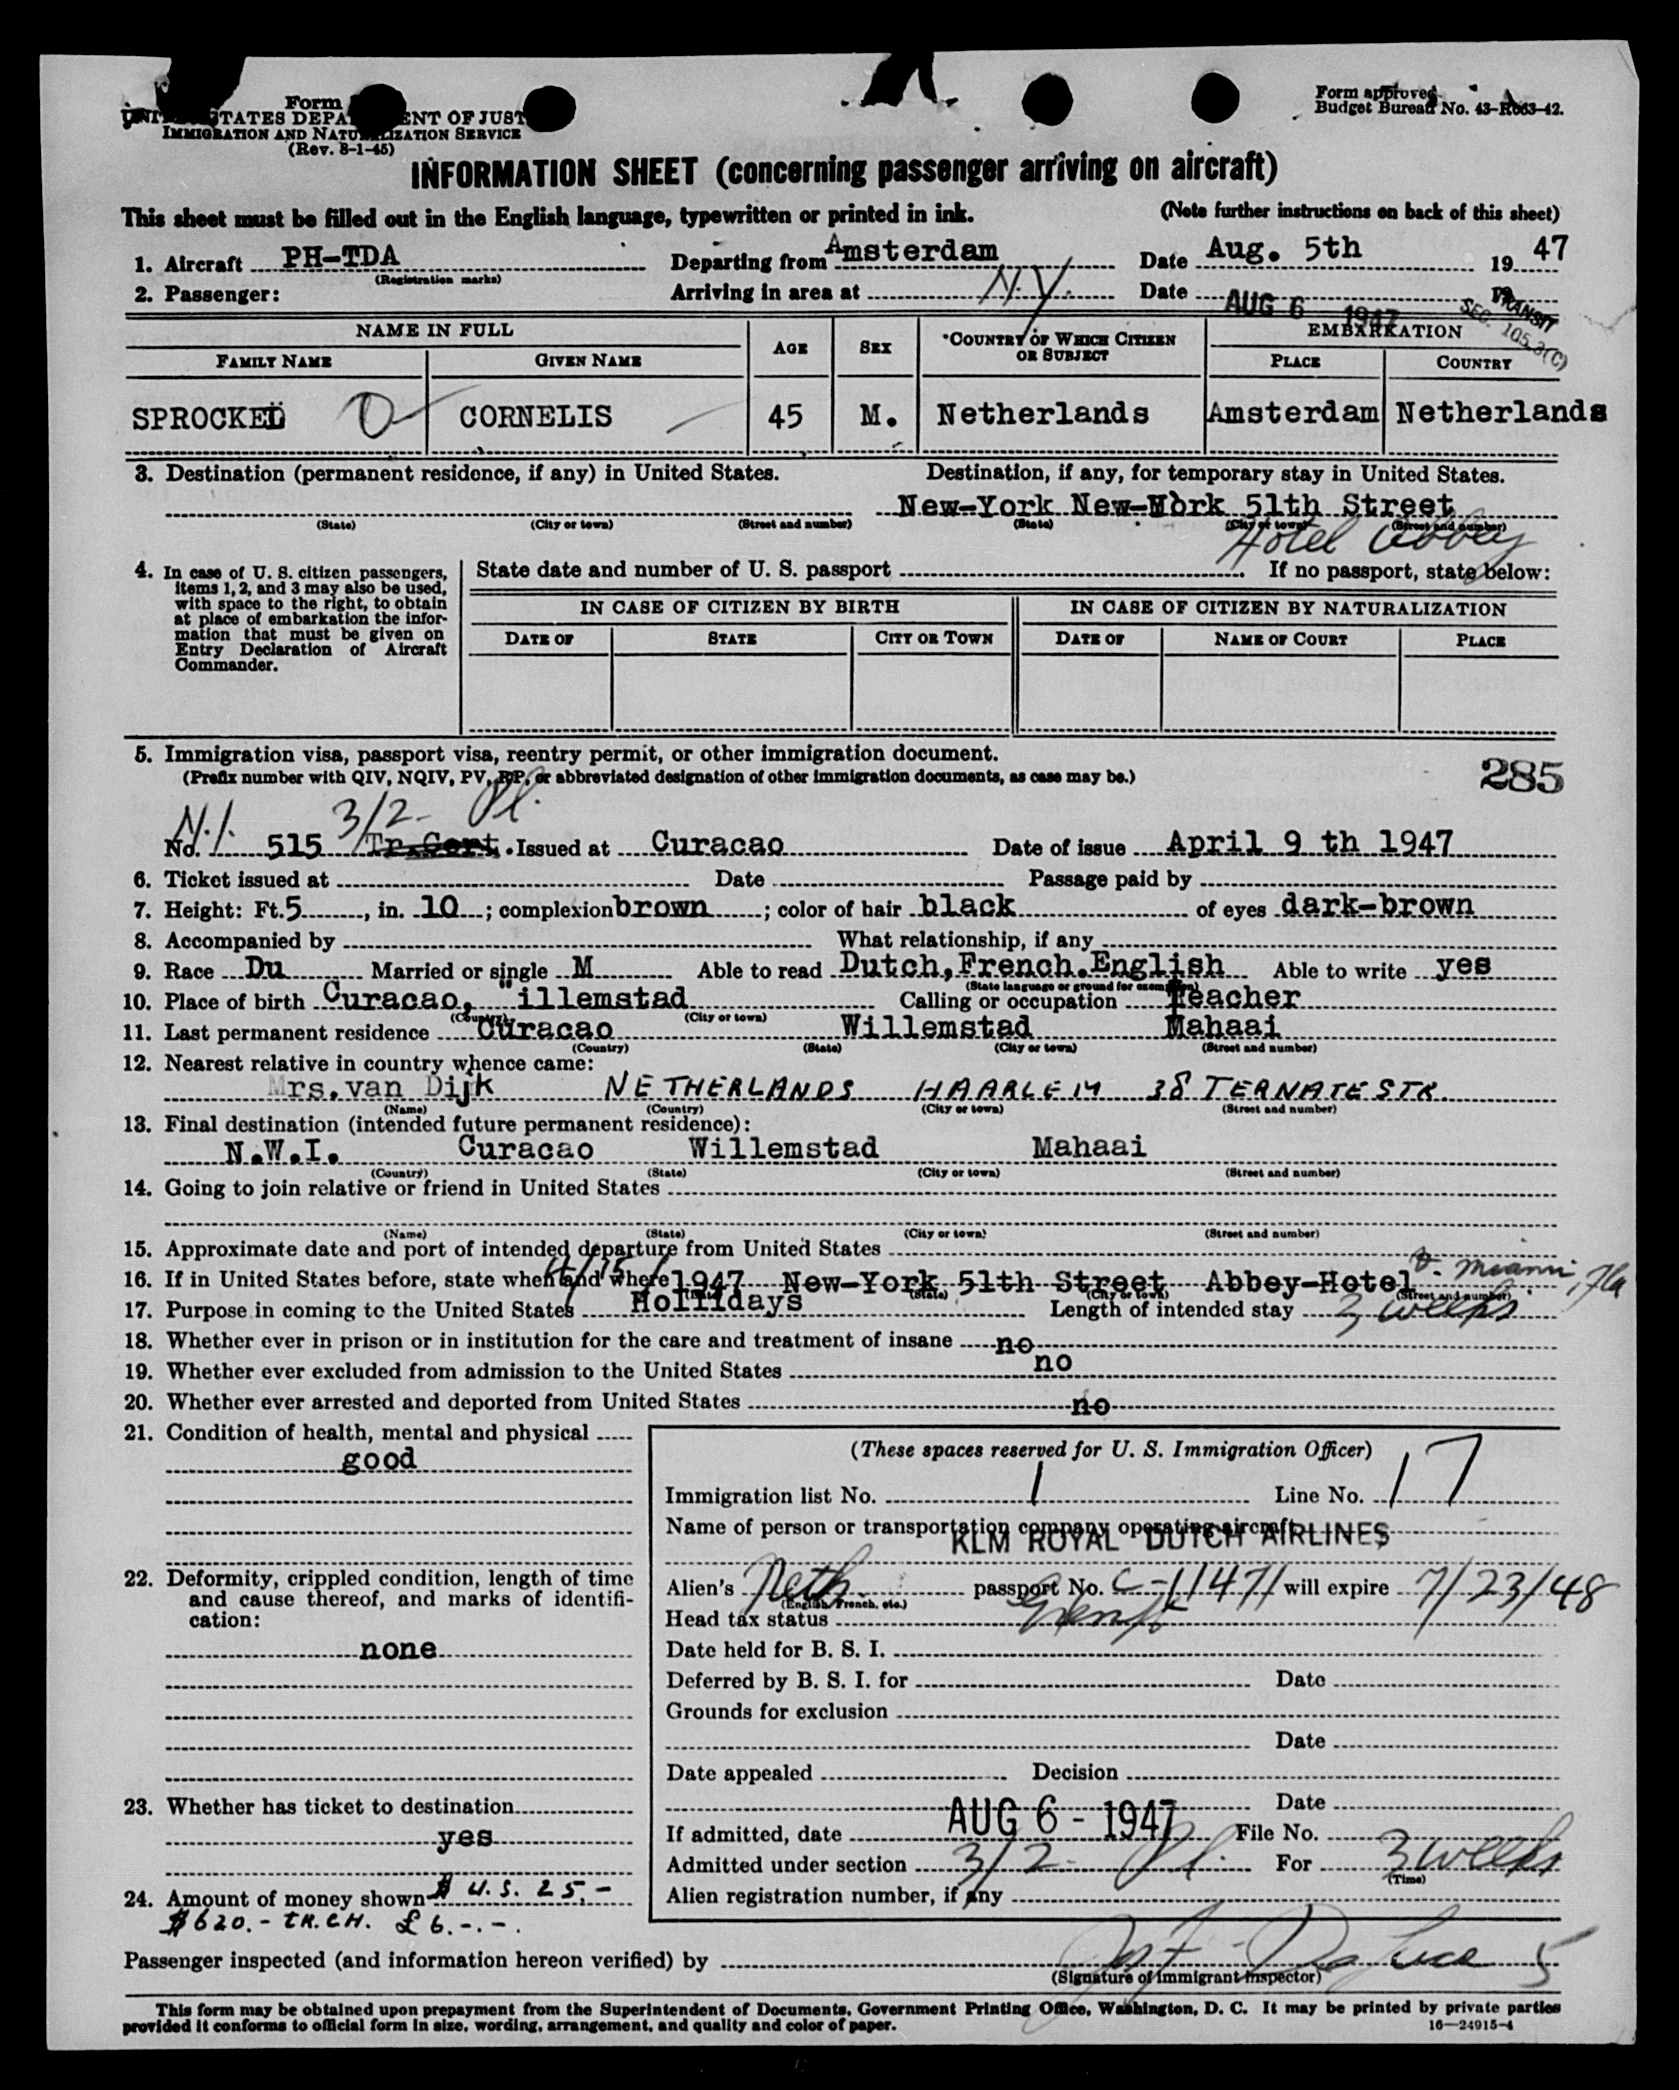 Form
UNITED STATES DEPARTMENT OF JUSTICE
IMMIGRATION AND NATURALIZATION SERVICE
(Rev. 8-1-45)
Form approved.
Budget Bureau No. 43-R063-42.
INFORMATION SHEET (concerning passenger arriving on aircraft)
This sheet must be filled out in the English language, typewritten or printed in ink. (Note further instructions on back of this sheet)
1. Aircraft PH-TDA Departing from Amsterdam Date Aug. 5th 1947
(Registration marks)
2. Passenger: Arriving in area at N.Y. Date AUG 6 1947 19
TRANSIT
SEC. 105.3(C)
NAME IN FULL AGE SEX *COUNTRY OF WHICH CITIZEN OR SUBJECT EMBARKATION
FAMILY NAME GIVEN NAME PLACE COUNTRY
SPROCKEL CORNELIS 45 M. Netherlands Amsterdam Netherlands
3. Destination (permanent residence, if any) in United States. Destination, if any, for temporary stay in United States.
New-York New-York 51th Street
(State) (City or town) (Street and number) (State) (City or town) (Street and number)
Hotel Abbey
4. In case of U. S. citizen passengers, items 1, 2, and 3 may also be used, with space to the right, to obtain at place of embarkation the information that must be given on Entry Declaration of Aircraft Commander.
State date and number of U. S. passport If no passport, state below:
IN CASE OF CITIZEN BY BIRTH IN CASE OF CITIZEN BY NATURALIZATION
DATE OF STATE CITY OR TOWN DATE OF NAME OF COURT PLACE
5. Immigration visa, passport visa, reentry permit, or other immigration document.
(Prefix number with QIV, NQIV, PV, RP, or abbreviated designation of other immigration documents, as case may be.)
285
N.I. 3/2- Pl.
No. 515 Tr.Cert. Issued at Curacao Date of issue April 9 th 1947
6. Ticket issued at Date Passage paid by
7. Height: Ft. 5, in. 10; complexion brown; color of hair black of eyes dark-brown
8. Accompanied by What relationship, if any
9. Race Du Married or single M Able to read Dutch,French.English Able to write yes
(State language or ground for exemption)
10. Place of birth Curacao, "illemstad Calling or occupation Teacher
(Country) (City or town)
11. Last permanent residence Curacao Willemstad Mahaai
(Country) (State) (City or town) (Street and number)
12. Nearest relative in country whence came:
Mrs.van Dijk NETHERLANDS HAARLEM 38 TERNATESTR.
(Name) (Country) (City or town) (Street and number)
13. Final destination (intended future permanent residence):
N.W.I. Curacao Willemstad Mahaai
(Country) (State) (City or town) (Street and number)
14. Going to join relative or friend in United States
(Name) (State) (City or town) (Street and number)
15. Approximate date and port of intended departure from United States
16. If in United States before, state when and where 4/15/1947 New-York 51th Street Abbey-Hotel Miami, Fla
(State) (City or town) (Street and number)
17. Purpose in coming to the United States Hollidays Length of intended stay 3 weeks.
18. Whether ever in prison or in institution for the care and treatment of insane no
19. Whether ever excluded from admission to the United States no
20. Whether ever arrested and deported from United States no
21. Condition of health, mental and physical
good
22. Deformity, crippled condition, length of time and cause thereof, and marks of identification:
none
23. Whether has ticket to destination
yes
24. Amount of money shown $ U.S. 25,-
$620.- TR.CH. £6.-.-.
(These spaces reserved for U. S. Immigration Officer)
Immigration list No. 1 Line No. 17
Name of person or transportation company operating aircraft
KLM ROYAL DUTCH AIRLINES
Alien's Neth. passport No. C-11471 will expire 7/23/48
(English, French, etc.)
Head tax status Exempt
Date held for B. S. I.
Deferred by B. S. I. for Date
Grounds for exclusion
Date
Date appealed Decision
Date
If admitted, date AUG 6 - 1947 File No.
Admitted under section 3/2- Pl. For 3 weeks
(Time)
Alien registration number, if any
Passenger inspected (and information hereon verified) by
(Signature of Immigrant Inspector) 5
This form may be obtained upon prepayment from the Superintendent of Documents, Government Printing Office, Washington, D. C. It may be printed by private parties
provided it conforms to official form in size, wording, arrangement, and quality and color of paper.
16—24915-4